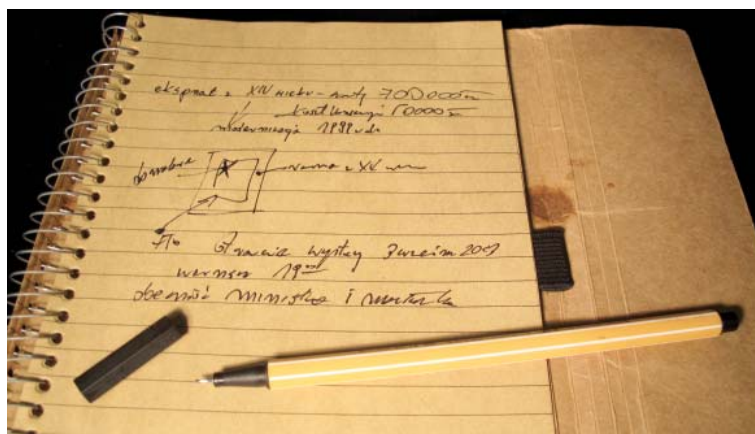 eksponat z XIV wieku - warty 700 000 zł
koszt konserwacji 50000 zł
modernizacja 1992 rok
rama z XV
Tło
Otwarcie wystawy 3 września 2007
wernisaż 19⁰⁰
obecność ministra i